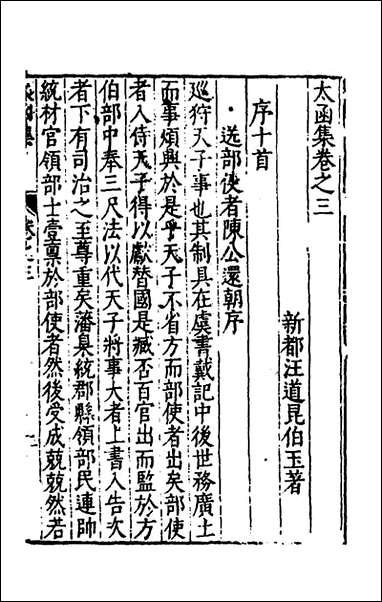 太函集卷之三
新都汪道昆伯玉著
序十首
送部使者陳公還朝序
巡狩天子事也其制具在虞書戴記中後世務廣土
而事煩興於是乎天子不省方而部使者出矣部使
者入侍天子得以獻替國是臧否百官出而監於方
伯部中奉三尺法以代天子將事大者上書入告次
者下有司治之至尊重矣藩臬統郡縣領部民連帥
統材官領部士壹稟於部使者然後受成兢兢然若